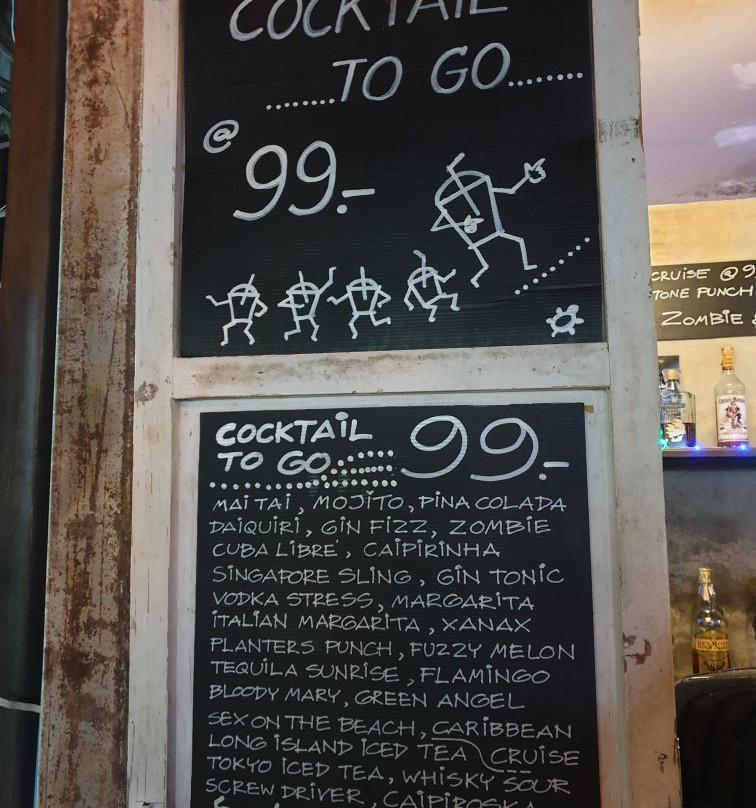 COCKTAIL
........TO GO........
@ 99.-
COCKTAIL
TO GO
99.-
MAI TAI, MOJITO, PINA COLADA
DAIQUIRI, GIN FIZZ, ZOMBIE
CUBA LIBRE, CAIPIRINHA
SINGAPORE SLING, GIN TONIC
VODKA STRESS, MARGARITA
ITALIAN MARGARITA, XANAX
PLANTERS PUNCH, FUZZY MELON
TEQUILA SUNRISE, FLAMINGO
BLOODY MARY, GREEN ANGEL
SEX ON THE BEACH, CARIBBEAN
LONG ISLAND ICED TEA CRUISE
TOKYO ICED TEA, WHISKY SOUR
SCREW DRIVER, CAIPIROSKA
CRUISE @ 9
TONE PUNCH
ZOMBIE &
Captain Morgan